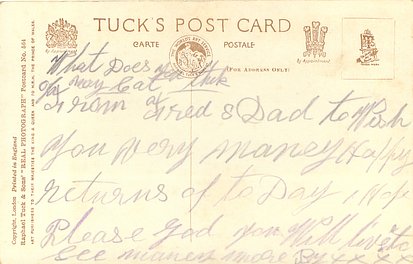 TUCK'S POST CARD
CARTE POSTALE
(FOR ADDRESS ONLY)
By Appointment
By Appointment
What Does you
you say Cat
From Fred & Dad to Wish
you Very maney Happy
returns of to Day, i Hope
Please God you Will live to
See maney more By x x x x
Copyright. London Printed in England
Raphael Tuck & Sons' "REAL PHOTOGRAPH" Postcard No.
ART PUBLISHERS TO THEIR MAJESTIES THE KING & QUEEN AND TO H.R.H. THE PRINCE OF WALES.